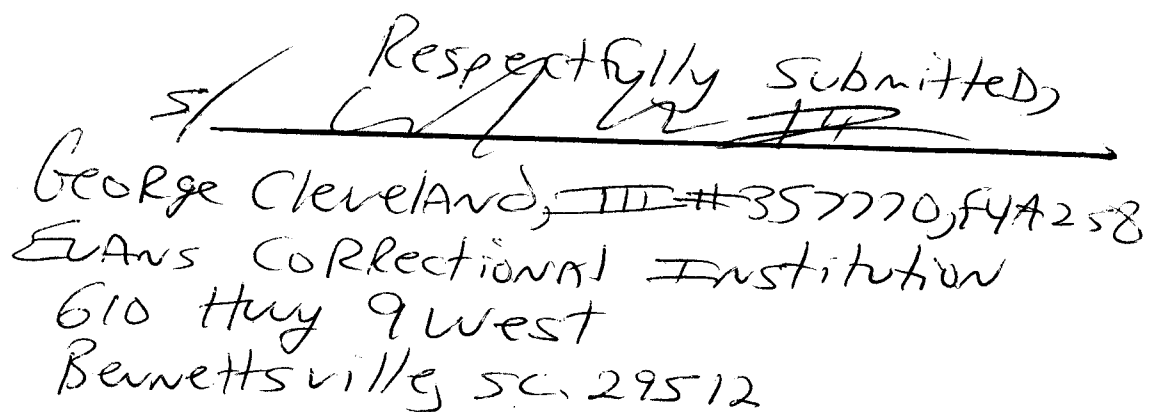 Respectfully submitted,
s/
George Cleveland, III #357770, F4A258
Evans Correctional Institution
610 Hwy 9 West
Bennettsville, SC. 29512